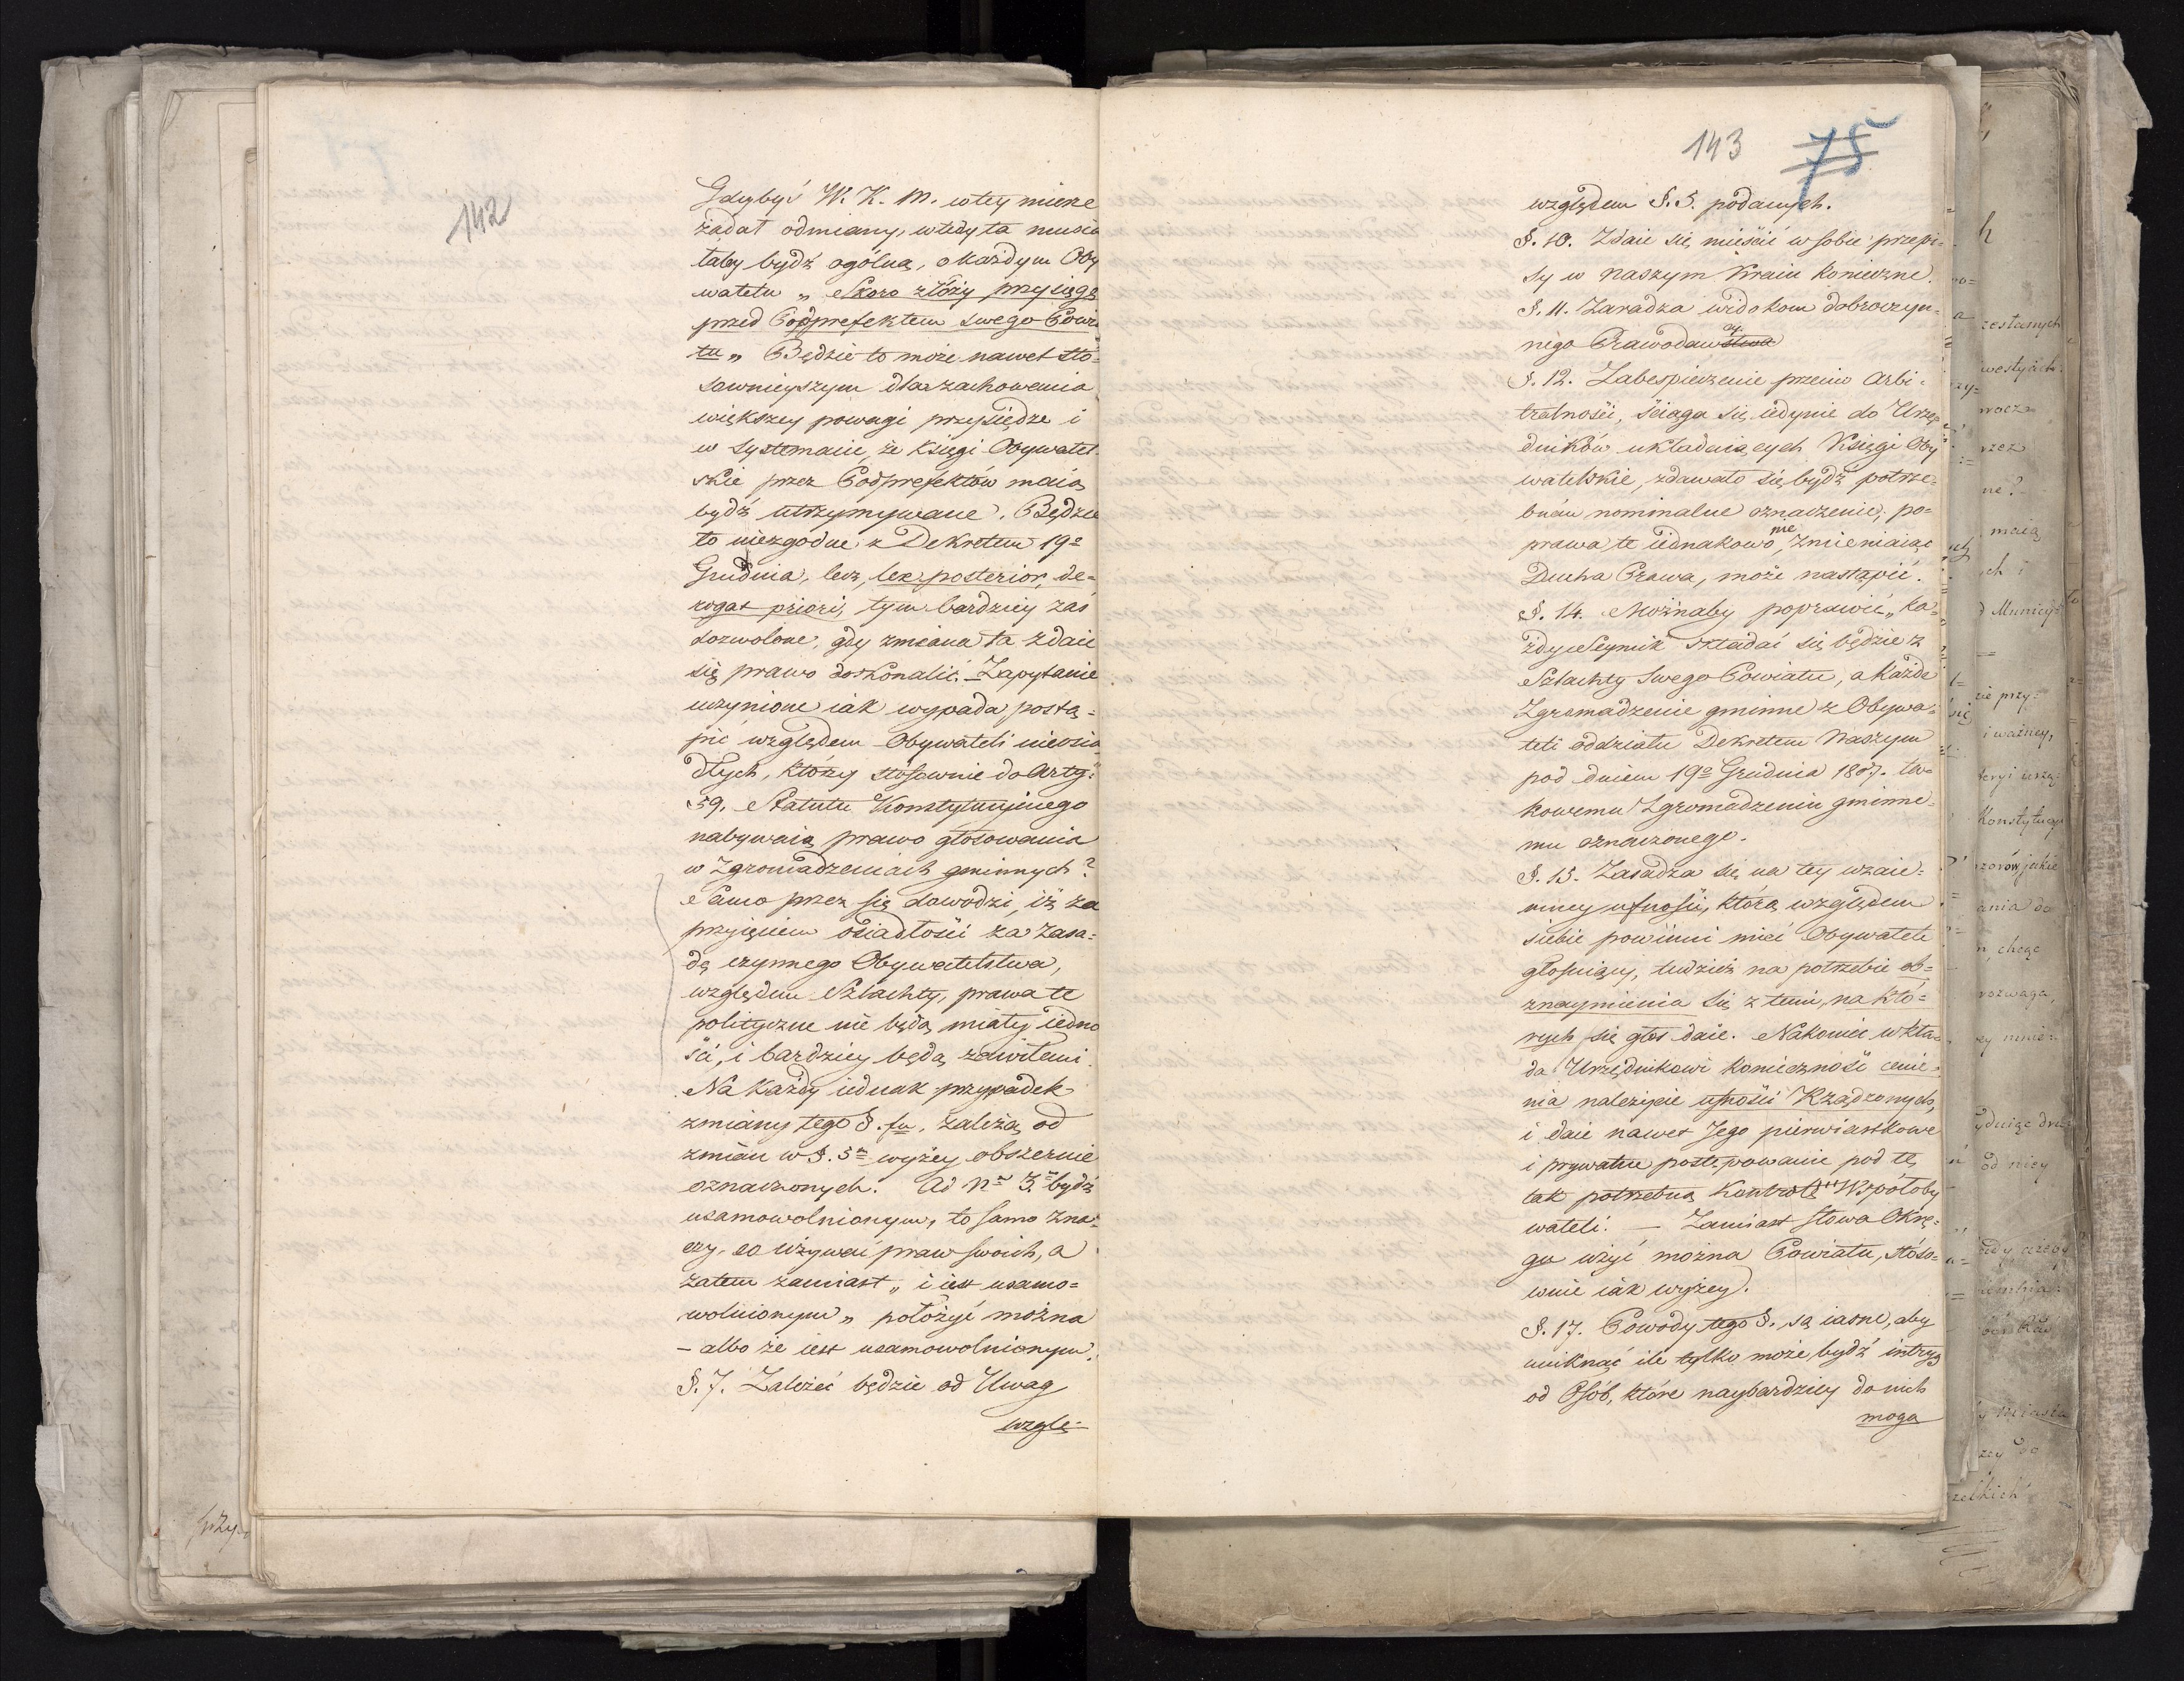 142
Gdybyś W. K. M. wtey mierze
żądał odmiany, wtedy ta musia
łaby bydź ogólną, o każdym Oby
watelu „ Skoro złoży przysięgę
przed Podprefektem swego Powia
tu „ Będzie to może nawet sto-
sownieyszym dla zachowania
większey powagi przysiędze i
w systemacie, że Księgi Obywatel
skie przez Podprefektów maią
bydź utrzymywane. Będzie
to niezgodne z Dekretem 19º
Grudnia, lecz, lex posterior, de-
rogat priori, tym bardziey zaś
dozwolone, gdy zmiana ta zdaie
się prawo doskonalić. – Zapytanie
uczynione iak wypada postą=
pić względem Obywateli nieosia
dłych, którzy stosownie do Artg:
59. Statutu Konstytucyinego
nabywaią prawo głosowania
w Zgromadzeniach gminnych?
Samo przez się dowodzi, iż za
przyięciem osiadłości za zasa=
dę czynnego Obywatelstwa,
względem Szlachty, prawa te
polityczne nie będą miały iedno
ści, i bardziey będą zawiłemi.
Na każdy iednak przypadek
zmiany tego §. fu, zależą od
zmian w §. 5m wyżey obszernie
oznaczonych. Ad Nm 3m bydź
usamowolnionym, to samo zna=
czy, co używać praw swoich, a
zatem zamiast „ i iest usamo=
wolnionym „ położyć można
– albo że iest usamowolnionym.
§. 7. Zależeć będzie od Uwag
wzglę-
143 75
względem §. 5. podanych.
§. 10. Zdaie się mieścić w sobie przepi=
sy w naszym Kraiu konieczne.
§. 11. Zaradza widokom dobroczyn=
nego Prawodawstwa
cy.
§. 12. Zabespieczenie przeciw Arbi=
tralności, ściąga się iedynie do Urzę
dników układaiących Księgi Oby
watelskie, zdawało się bydź potrze=
bném nominalne oznaczenie; po=
prawa te iednakowo, nie zmieniaiąc
Ducha Prawa, może nastąpić.
§. 14. Możnaby poprawić „ ka=
żdy Seymik składać się będzie z
Szlachty swego Powiatu, a każde
Zgromadzenie gminne z Obywa=
teli oddziału Dekretem Naszym
pod dniem 19º Grudnia 1807. ta=
kowemu Zgromadzeniu gminne=
mu oznaczonego.
§. 15. Zasadza się na tey wzaie=
mney ufności, którą względem
siebie powinni mieć Obywatele
głosuiący, tudzież na potrzebie ob=
znaymienia się z temi, na któ=
rych się głos daie. Nakoniec wkła=
da Urzędnikowi konieczność cenie=
nia należycie ufności Rządzonych,
i daie nawet Jego pierwiastkowe
i prywatne postępowanie pod tę
tak potrzebną Kontrolę Współoby
wateli. – Zamiast słowa Okrę=
gu użyć można Powiatu, stóso=
wnie iak wyżey.
§. 17. Powody tego §. są iasne, aby
uniknąć ile tylko może bydź intryg
od Osób, które naybardziey do nich
mogą